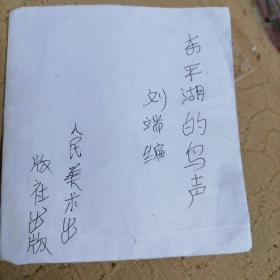 东平湖的鸟声
刘端编
人民美术出
版社出版